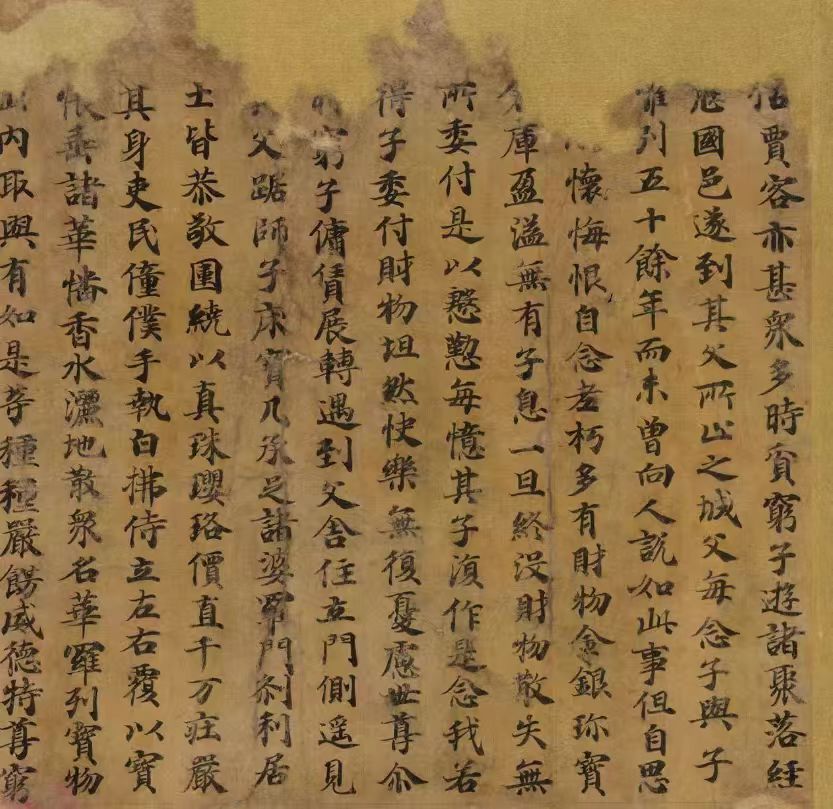 估賈客亦甚衆多時貧窮子遊諸聚落經
歷國邑遂到其父所止之城父每念子與子
離別五十餘年而未曾向人說如此事但自思
懷悔恨自念老朽多有財物金銀珎寶
庫盈溢無有子息一旦終没財物散失無
所委付是以慇懃每憶其子復作是念我若
得子委付財物坦然快樂無復憂慮世尊尒
窮子傭賃展轉遇到父舍住立門側遥見
父踞師子床寶几承足諸婆羅門刹利居
士皆恭敬圍繞以真珠瓔珞價直千万莊嚴
其身吏民僮僕手執白拂侍立左右覆以寶
帳垂諸華幡香水灑地散衆名華羅列寶物
出内取與有如是等種種嚴餝威德特尊窮